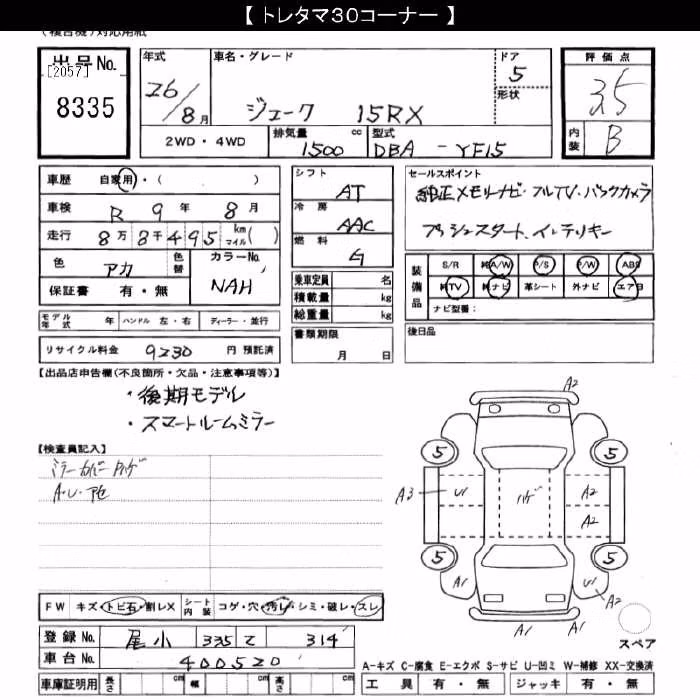 【 トレタマ30コーナー 】
(複合機)対応用紙
出品No. [2057] 8335
年式 26/8月
車名・グレード ジューク 15RX
ドア 5 形状
評価点 3.5
内装 B
2WD・4WD 排気量 1500 cc 型式 DBA - YF15
車歴 自家用・( )
車検 R 9年 8月
走行 8万8千495 km マイル( )
色 アカ 色替 カラーNo. NAH
保証書 有・無
シフト AT
冷房 AAC
燃料 G
乗車定員 名
積載量 kg
総重量 kg
書類期限 月 日
セールスポイント
純正メモリナビ・フルTV・バックカメラ
プッシュスタート、インテリキー
装備品 S/R 純A/W P/S P/W ABS
純TV 純ナビ 革シート 外ナビ エアB
ナビ型番:
後日品
モデル年式 年 ハンドル 左・右 ディーラー・並行
リサイクル料金 9230 円 預託済
【出品店申告欄(不良箇所・欠品・注意事項等)】
・後期モデル
・スマートルームミラー
【検査員記入】
ミラーカバーハゲ
A・U・
FW キズ・トビ石・割レX シート内装 コゲ・穴・汚レ・シミ・破レ・スレ
登録No. 尾小 335 て 314
車台No. 400520
車庫証明用 長さ cm 幅 cm 高さ cm
A2
5 5
A3 U1 ハゲ A2
A2
5 5
A1 U1 A2
A1 A1
スペア
A-キズ C-腐食 E-エクボ S-サビ U-凹ミ W-補修 XX-交換済
工具 有・無 ジャッキ 有・無